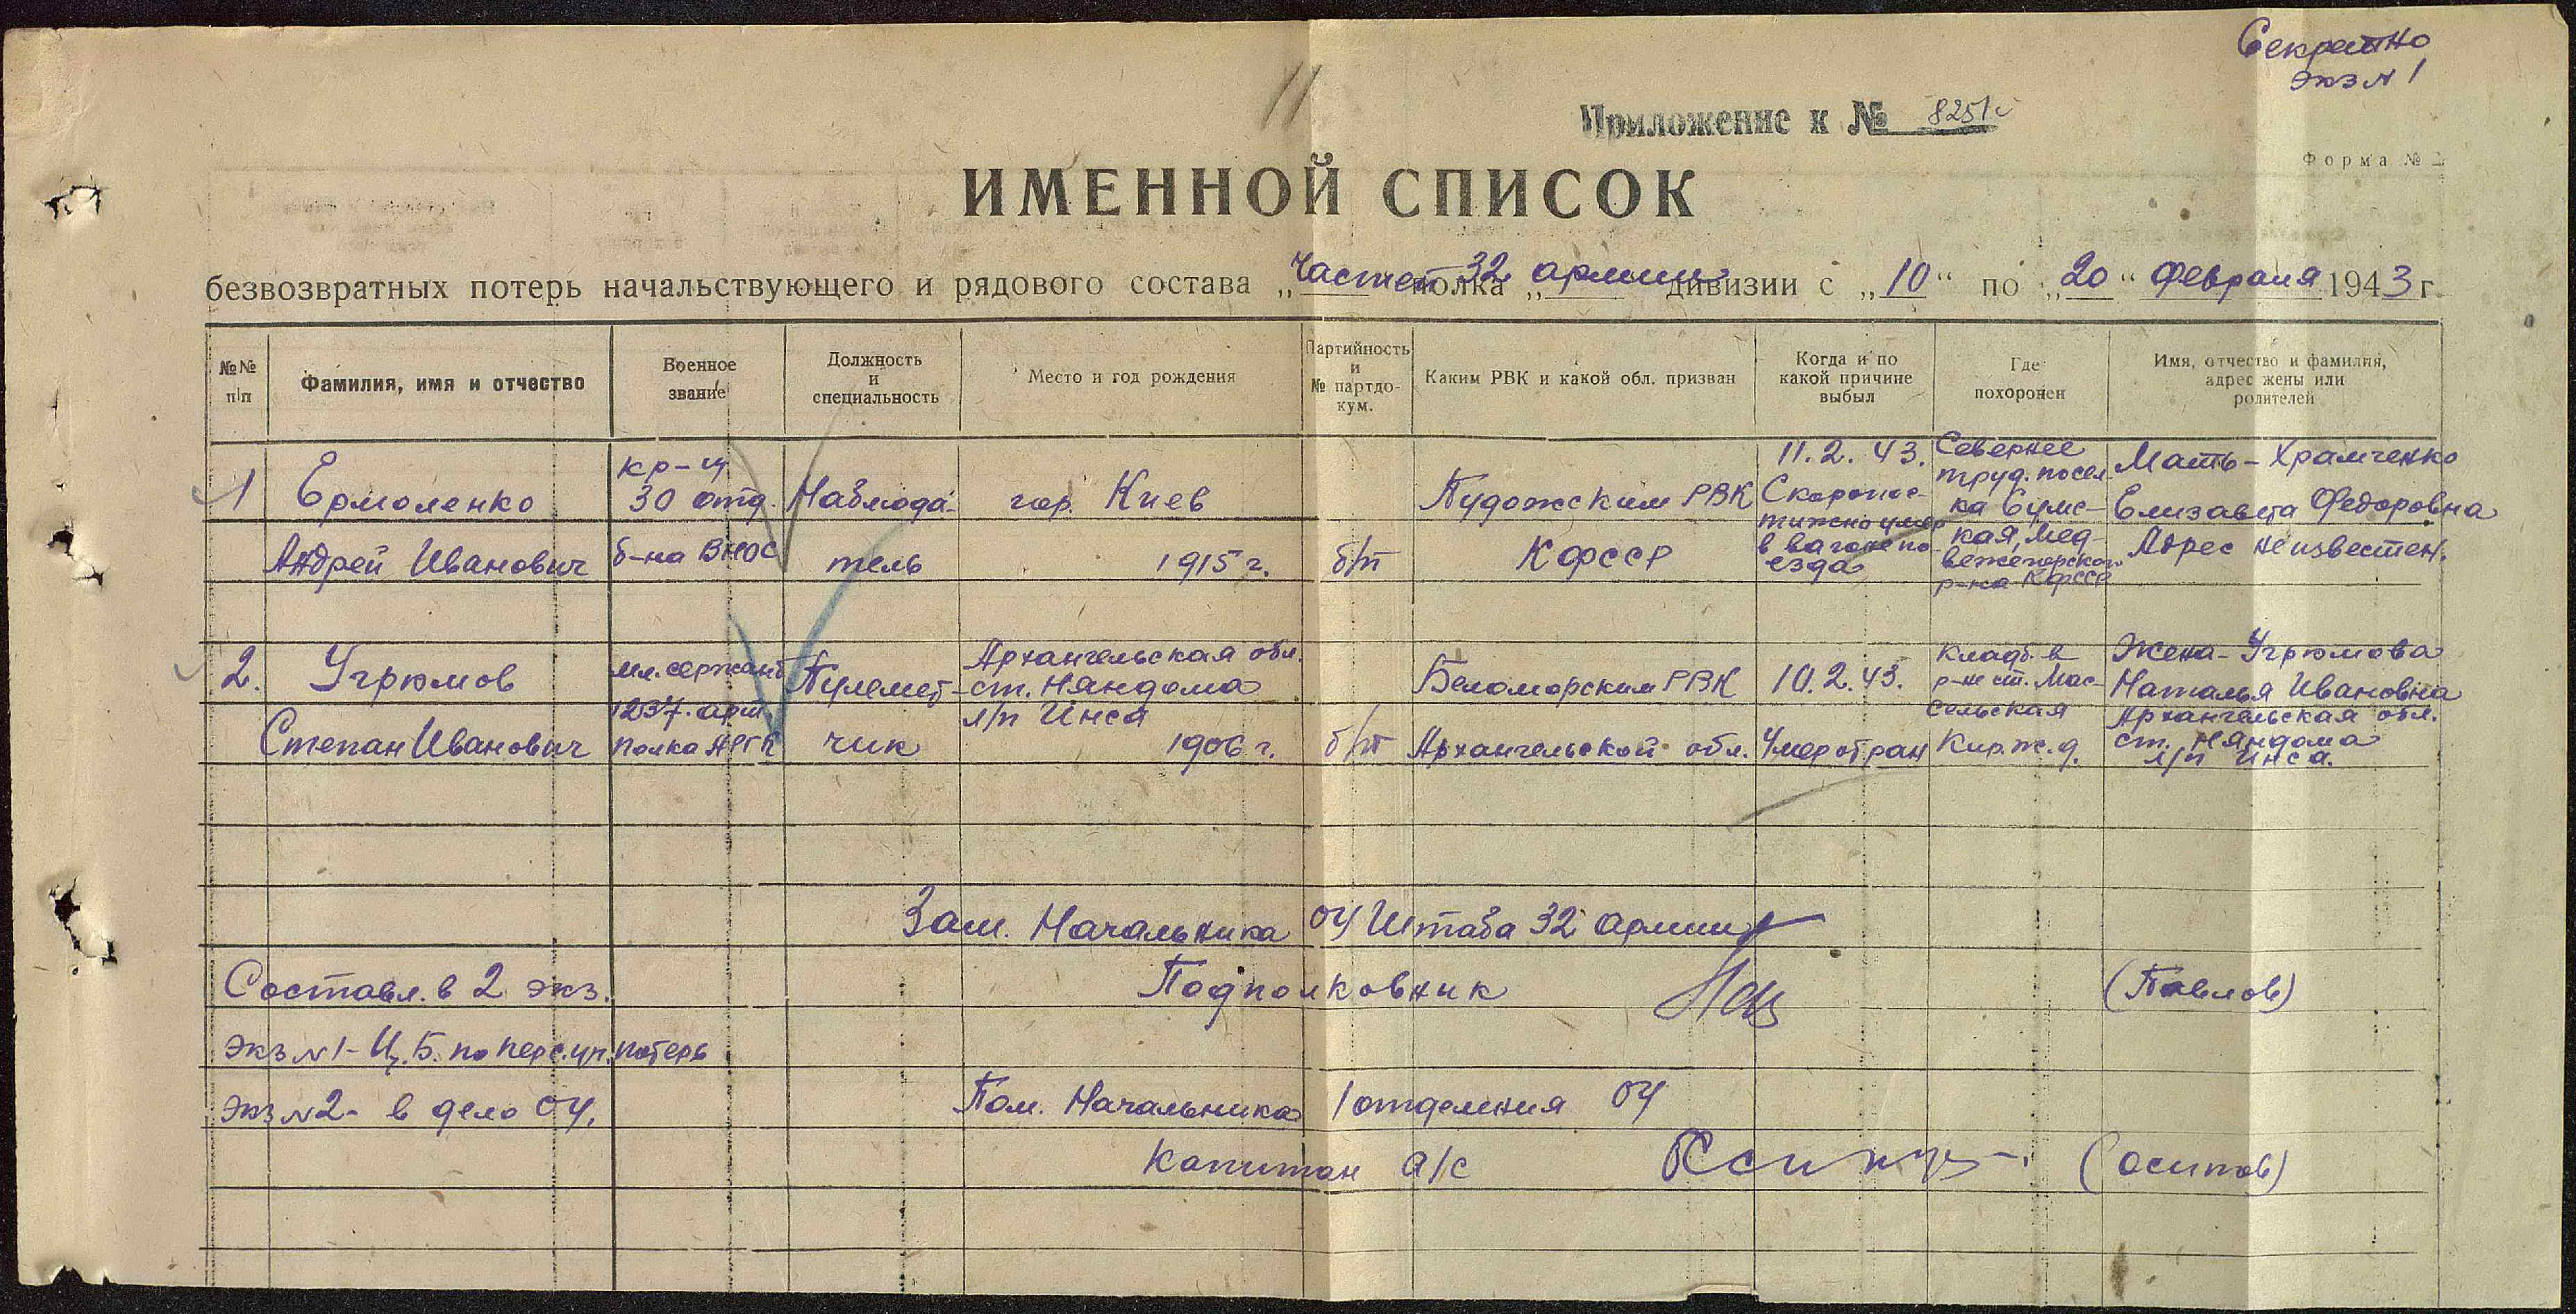 Секретно
экз N 1
11
Приложение к № 8251с
Форма № 2
ИМЕННОЙ СПИСОК
безвозвратных потерь начальствующего и рядового состава „частей полка 32 „армии дивизии с „10“ по „20“ февраля 1943 г.
№№ п/п
Фамилия, имя и отчество
Военное звание
Должность и специальность
Место и год рождения
Партийность и № партдокум.
Каким РВК и какой обл. призван
Когда и по какой причине выбыл
Где похоронен
Имя, отчество и фамилия, адрес жены или родителей
1
Ермоленко
Андрей Иванович
кр-ц
30 отд.
б-на ВНОС
Наблюда-
тель
гор. Киев
1915 г.
б/п
Пудожским РВК
КФССР
11.2.43.
Скоропос-
тижно умер
в вагоне по-
езда
Севернее
труд. посел-
ка Сумс-
кая, Мед-
вежегорского
р-на КФССР
Мать - Храмченко
Елизавета Федоровна
Адрес неизвестен.
2.
Угрюмов
Степан Иванович
мл. сержант
1237. арт.
полка АРГК
Пулемет-
чик
Архангельская обл.
ст. Няндома
л/п Инса
1906 г.
б/п
Беломорским РВК
Архангельской обл.
10.2.43.
Умер от ран
Кладб. в
р-не ст. Мас-
сельская
Кир. ж. д.
Жена - Угрюмова
Наталья Ивановна
Архангельская обл.
ст. Няндома
л/п Инса.
Зам. Начальника ОУ Штаба 32 армии
Составл. в 2 экз.
Подполковник
(Павлов)
экз N 1 - Ц. Б. по перс. уч. потерь
экз N 2 - в дело ОУ.
Пом. Начальника 1 отделения ОУ
Капитан а/с
(Осипов)